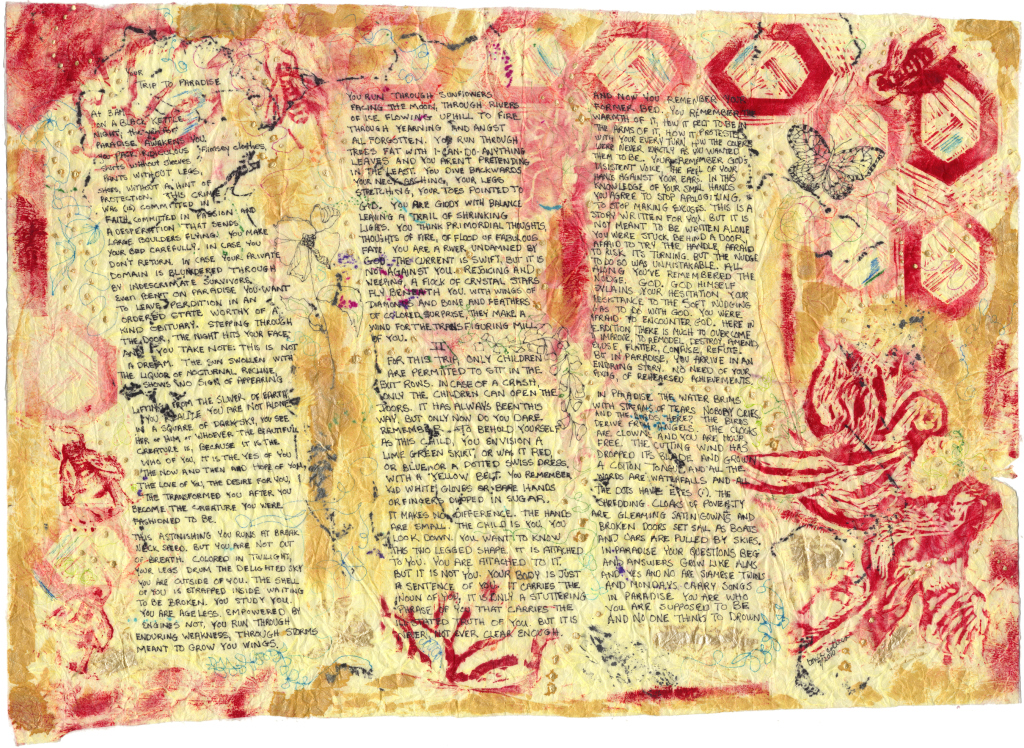 OUR
TRIP TO PARADISE
AT 3AM
ON A BLACK KETTLE
NIGHT,
PARADISE AWAKENS YOU.
YOU PACK RIDICULOUS FLIMSY CLOTHES,
SHIRTS WITHOUT SLEEVES,
PANTS WITHOUT LEGS,
SHOES, WITHOUT A HINT OF
PROTECTION. THIS CRIME
WAS (IS) COMMITTED IN
FAITH, COMMITTED IN PASSION: AND
A DESPERATION THAT SENDS
LARGE BOULDERS FLYING. YOU MAKE
YOUR BED CAREFULLY. IN CASE YOU
DON'T RETURN. IN CASE YOUR PRIVATE
DOMAIN IS BLUNDERED THROUGH
BY INDESCRIMATE SURVIVORS,
EVEN BENT ON PARADISE YOU WANT
TO LEAVE PERDITION IN AN
ORDERED STATE WORTHY OF A
KIND OBITUARY. STEPPING THROUGH
THE DOOR, THE NIGHT HITS YOUR FACE,
AND YOU TAKE NOTE: THIS IS NOT
A DREAM. THE SUN SWOLLEN WITH
THE LIQUOR OF NOCTURNAL RECLINE,
SHOWS NO SIGN OF APPEARING
LIFTING FROM THE SLIVER OF EARTH
YOU REALIZE YOU ARE NOT ALONE.
IN A SQUARE OF DARK SKY, YOU SEE
HER OR HIM OR WHOEVER THE BEAUTIFUL
CREATURE IS, BECAUSE IT IS THE
WHO OF YOU, IT IS THE YES OF YOU
THE NOW AND THEN AND HOPE OF YOU,
THE LOVE OF YOU, THE DESIRE FOR YOU,
THE TRANSFORMED YOU AFTER YOU
BECOME THE CREATURE YOU WERE
FASHIONED TO BE.
THIS ASTONISHING YOU RUNS AT BREAK
NECK SPEED. BUT YOU ARE NOT OUT
OF BREATH. COLORED IN TWILIGHT,
YOUR LEGS DRUM THE DELIGHTED SKY
YOU ARE OUTSIDE OF YOU. THE SHELL
OF YOU IS STRAPPED INSIDE WAITING
TO BE BROKEN. YOU STUDY YOU.
YOU ARE AGELESS. EMPOWERED BY
ENGINES NOT, YOU RUN THROUGH
ENDURING WEAKNESS, THROUGH STORMS
MEANT TO GROW YOU WINGS.
YOU RUN THROUGH SUNFLOWERS
FACING THE MOON, THROUGH RIVERS
OF ICE FLOWING UPHILL TO FIRE
THROUGH YEARNING AND ANGST
ALL FORGOTTEN. YOU RUN THROUGH
TREES FAT WITH I-CAN-DO-ANYTHING
LEAVES AND YOU AREN'T PRETENDING
IN THE LEAST. YOU DIVE BACKWARDS
YOUR NECK GASHING, YOUR LEGS
STRETCHING, YOUR TOES POINTED TO
GOD. YOU ARE GIDDY WITH BALANCE
LEAVING A TRAIL OF SHRINKING
LIGHTS. YOU THINK PRIMORDIAL THOUGHTS,
THOUGHTS OF FIRE, OF FLOOD OF FABULOUS
FATE. YOU ARE A RIVER, UNDAMNED BY
GOD. THE CURRENT IS SWIFT, BUT IT IS
NOT AGAINST YOU. REJOICING AND
WEEPING, A FLOCK OF CRYSTAL STARS
FLY BENEATH YOU. WITH WINGS OF
DIAMONDS AND BONE AND FEATHERS
OF COLORED SURPRISE, THEY MAKE A
WIND FOR THE TRANSFIGURING MILL
OF YOU.
FOR THIS TRIP, ONLY CHILDREN
ARE PERMITTED TO SIT IN THE
EXIT ROWS. IN CASE OF A CRASH,
ONLY THE CHILDREN CAN OPEN THE
DOORS. IT HAS ALWAYS BEEN THIS
WAY BUT ONLY NOW DO YOU DARE
REMEMBER TO BEHOLD YOURSELF
AS THIS CHILD, YOU ENVISION A
LIME GREEN SKIRT, OR WAS IT RED,
OR BLUE, OR A DOTTED SWISS DRESS,
WITH A YELLOW BELT. YOU REMEMBER
KID WHITE GLOVES OR BARE HANDS
OR FINGERS DIPPED IN SUGAR.
IT MAKES NO DIFFERENCE. THE HANDS
ARE SMALL. THE CHILD IS YOU. YOU
LOOK DOWN. YOU WANT TO KNOW
THIS TWO LEGGED SHAPE. IT IS ATTACHED
TO YOU. YOU ARE ATTACHED TO IT.
BUT IT IS NOT YOU. YOUR BODY IS JUST
A SENTENCE OF YOU. IT CARRIES THE
NOUN OF YOU, IT IS ONLY A STUTTERING
PHRASE OF YOU THAT CARRIES THE
TRUTH OF YOU. BUT IT IS
NEVER, NOT EVER CLEAR ENOUGH.
AND NOW YOU REMEMBER YOUR
FORMER BED. YOU REMEMBER THE
WARMTH OF IT, HOW IT FELT TO BE IN
THE ARMS OF IT, HOW IT PROTESTED
WITH YOUR EVERY TURN, HOW THE COVERS
WERE NEVER EXACTLY AS YOU WANTED
THEM TO BE. YOU REMEMBER GOD'S
INSISTENT VOICE, THE FEEL OF YOUR
HANDS AGAINST YOUR EARS. IN THIS
KNOWLEDGE OF YOUR SMALL HANDS
YOU AGREE TO STOP APOLOGIZING.
TO STOP MAKING EXCUSES. THIS IS A
STORY WRITTEN FOR YOU. BUT IT IS
NOT MEANT TO BE WRITTEN ALONE
YOU WERE STUCK BEHIND A DOOR,
AFRAID TO TRY THE HANDLE, AFRAID
TO RISK ITS TURNING. BUT THE NUDGE
TO DO SO WAS UNMISTAKABLE. ALL
ALONG YOU'VE REMEMBERED THE
NUDGE. GOD, GOD HIMSELF
EXPLAINS YOUR HESITATION. YOUR
RESISTANCE TO THE SOFT NUDGING
HAS TO DO WITH GOD. YOU WERE
AFRAID TO ENCOUNTER GOD. HERE IN
PERDITION THERE IS MUCH TO OVERCOME
IMPROVE, TO REMODEL, DESTROY, AMEND,
ACCUSE, FLATTER, CONFUSE, REFUTE.
BE IN PARADISE, YOU ARRIVE IN AN
ENDURING STORY. NO NEED OF YOUR
FIXING, OF REHEARSED ACHIEVEMENTS.
IN PARADISE THE WATER BRIMS
WITH STREAMS OF TEARS NOBODY CRIES,
AND THE BIRDS THERE? THE BIRDS
DERIVE FROM ANGELS. THE CLOCKS
ARE CLOWNS AND YOU ARE HOUR
FREE. THE CUTTING WIND HAS
DROPPED ITS BLADE AND GROWN
A COTTON TONGUE AND ALL THE
WORDS ARE WATERFALLS AND ALL
THE DOTS HAVE EYES (i). THE
SHREDDING CLOAKS OF POVERTY
ARE GLEAMING SATIN GOWNS AND
BROKEN DOORS SET SAIL AS BOATS
AND CARS ARE PULLED BY SKIES,
IN PARADISE YOUR QUESTIONS BEG
AND ANSWERS GROW LIKE ALMS
AND YES AND NO ARE SIAMESE TWINS
AND MONDAYS CARRY SONGS
IN PARADISE YOU ARE WHO
YOU ARE SUPPOSED TO BE
AND NO ONE THINKS TO DROWN.